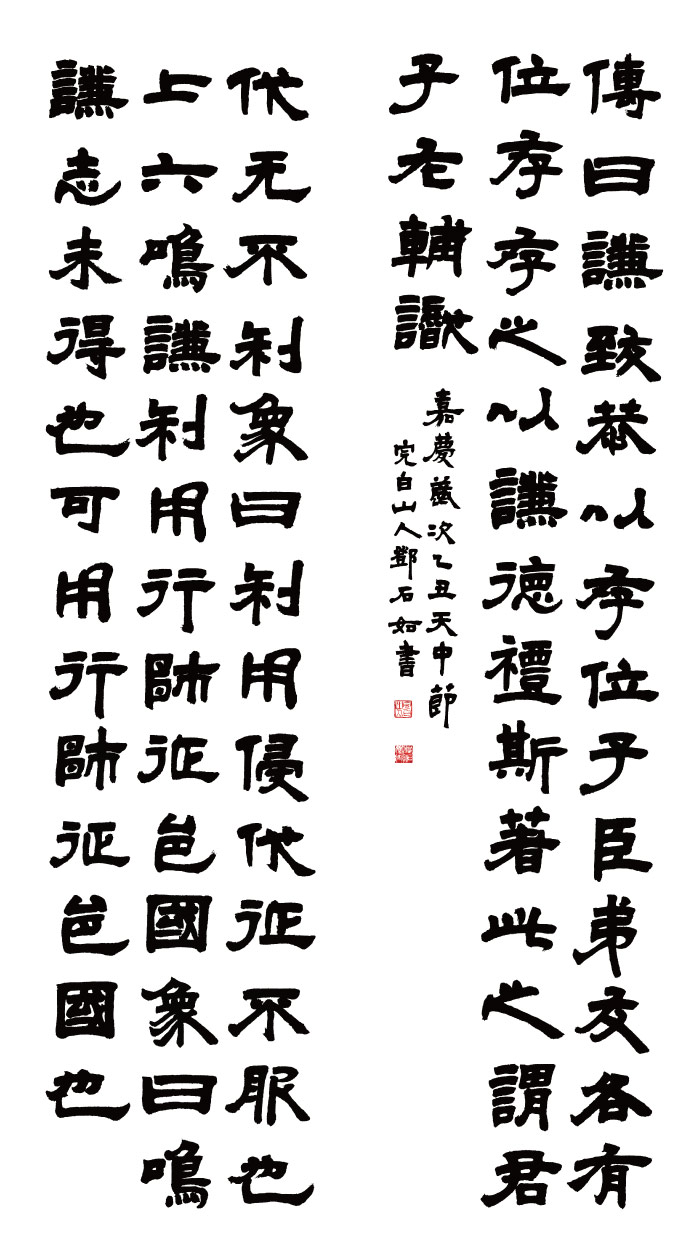 傳曰謙致恭以存位子臣弟友各有
位存存之以謙德禮斯著此之謂君
子輔
嘉慶歲次乙丑天中節
完白山人鄧石如書
伐无不利象曰利用侵伐征不服也
上六鳴謙利用行師征邑國象曰鳴
謙志未得也可用行師征邑國也